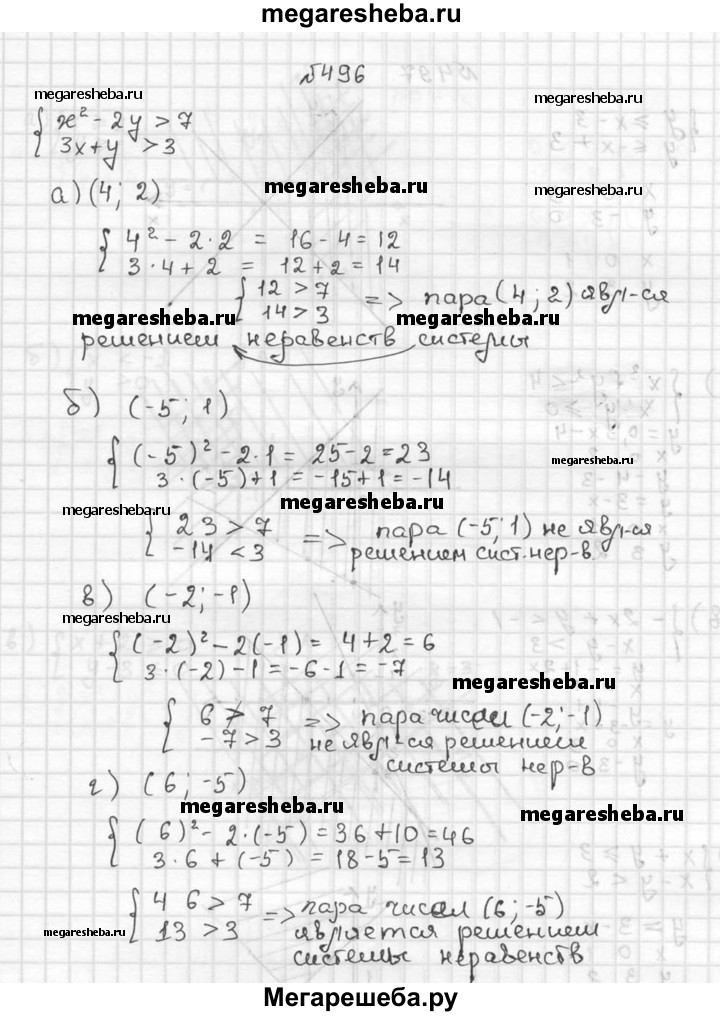 megaresheba.ru
№496
megaresheba.ru megaresheba.ru
{ x² - 2y > 7
3x+y > 3
megaresheba.ru megaresheba.ru
а) (4; 2)
{ 4² - 2·2 = 16 - 4 = 12
3·4 + 2 = 12 + 2 = 14
{ 12 > 7
14 > 3 => пара (4; 2) явл-ся
megaresheba.ru megaresheba.ru
решением неравенств системы
б) (-5; 1)
{ (-5)² - 2·1 = 25 - 2 = 23
3·(-5)+1 = -15+1 = -14
megaresheba.ru
megaresheba.ru megaresheba.ru
{ 23 > 7
-14 < 3 => пара (-5; 1) не явл-ся
решением сист. нер-в
в) (-2; -1)
megaresheba.ru
{ (-2)² - 2(-1) = 4+2 = 6
3·(-2) - 1 = -6 - 1 = -7
megaresheba.ru
{ 6 ≯ 7
-7 > 3 => пара чисел (-2; -1)
не явл-ся решением
системы нер-в
г) (6; -5)
megaresheba.ru megaresheba.ru
{ (6)² - 2·(-5) = 36 + 10 = 46
3·6 + (-5) = 18 - 5 = 13
{ 46 > 7
13 > 3 => пара чисел (6; -5)
megaresheba.ru является решением
системы неравенств
Мегарешеба.ру